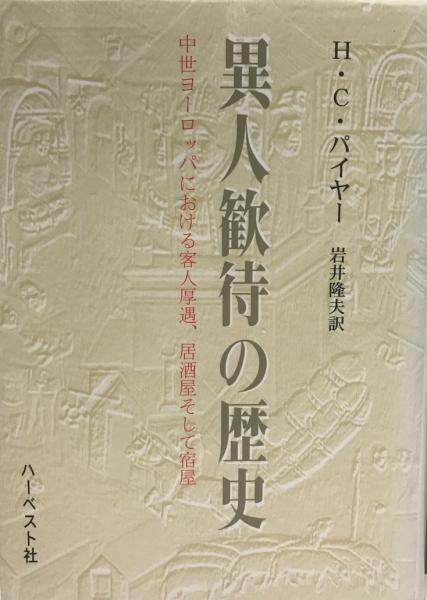 H・C・パイヤー
岩井隆夫訳
異人歓待の歴史
中世ヨーロッパにおける客人厚遇、居酒屋そして宿屋
ハーベスト社